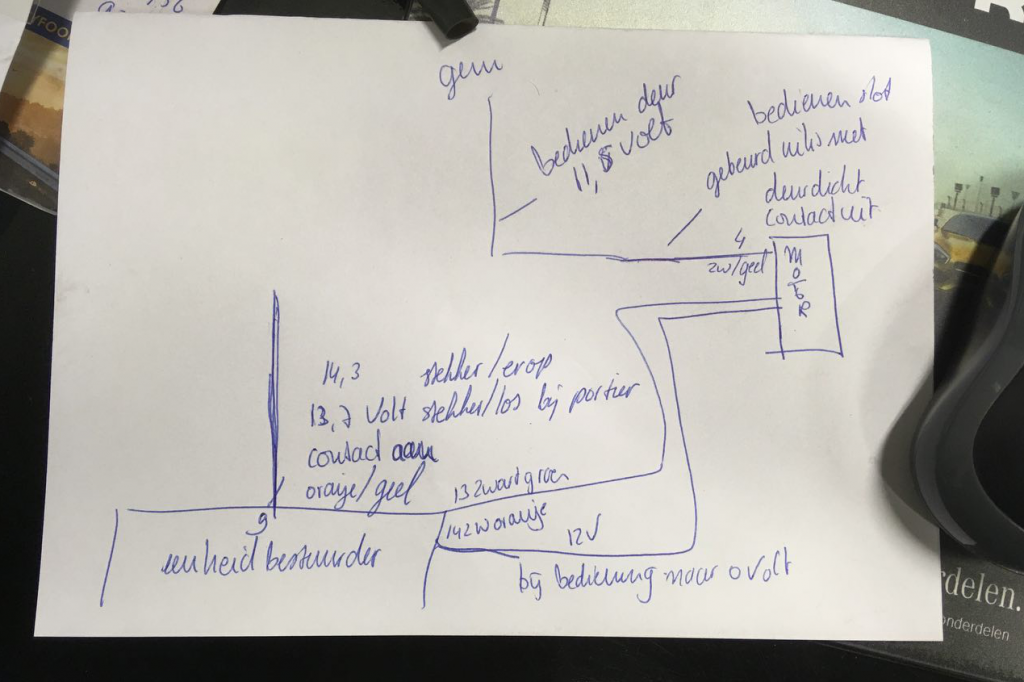 gem
bedienen deur
11,8 volt
bedienen slot
gebeurd niks met
deur dicht
contact uit
4
zw/geel
MOTOR
14,3 stekker/erop
13,7 Volt stekker/los bij portier
contact aan
oranje/geel
13 zwart groen
14 zw oranje
12V
9
eenheid bestuurder
bij bediening naar 0 Volt
rdelen.
onderdelen